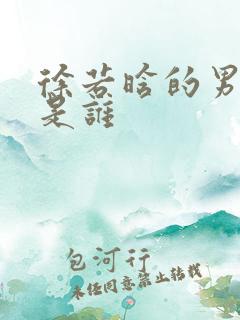 徐若晗的男
是誰
包河行
未经同意禁止转载